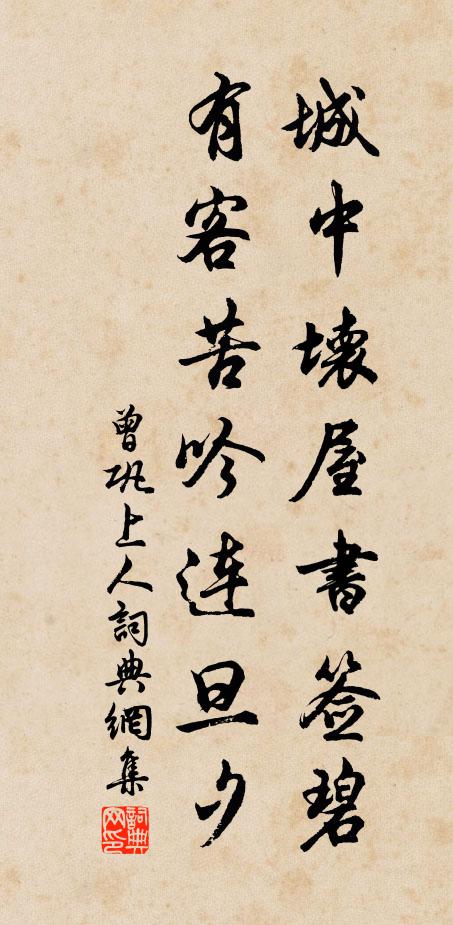 城中壞屋書簽碧
有客苦吟連旦夕
曾巩上人詞典網集
詞典网印